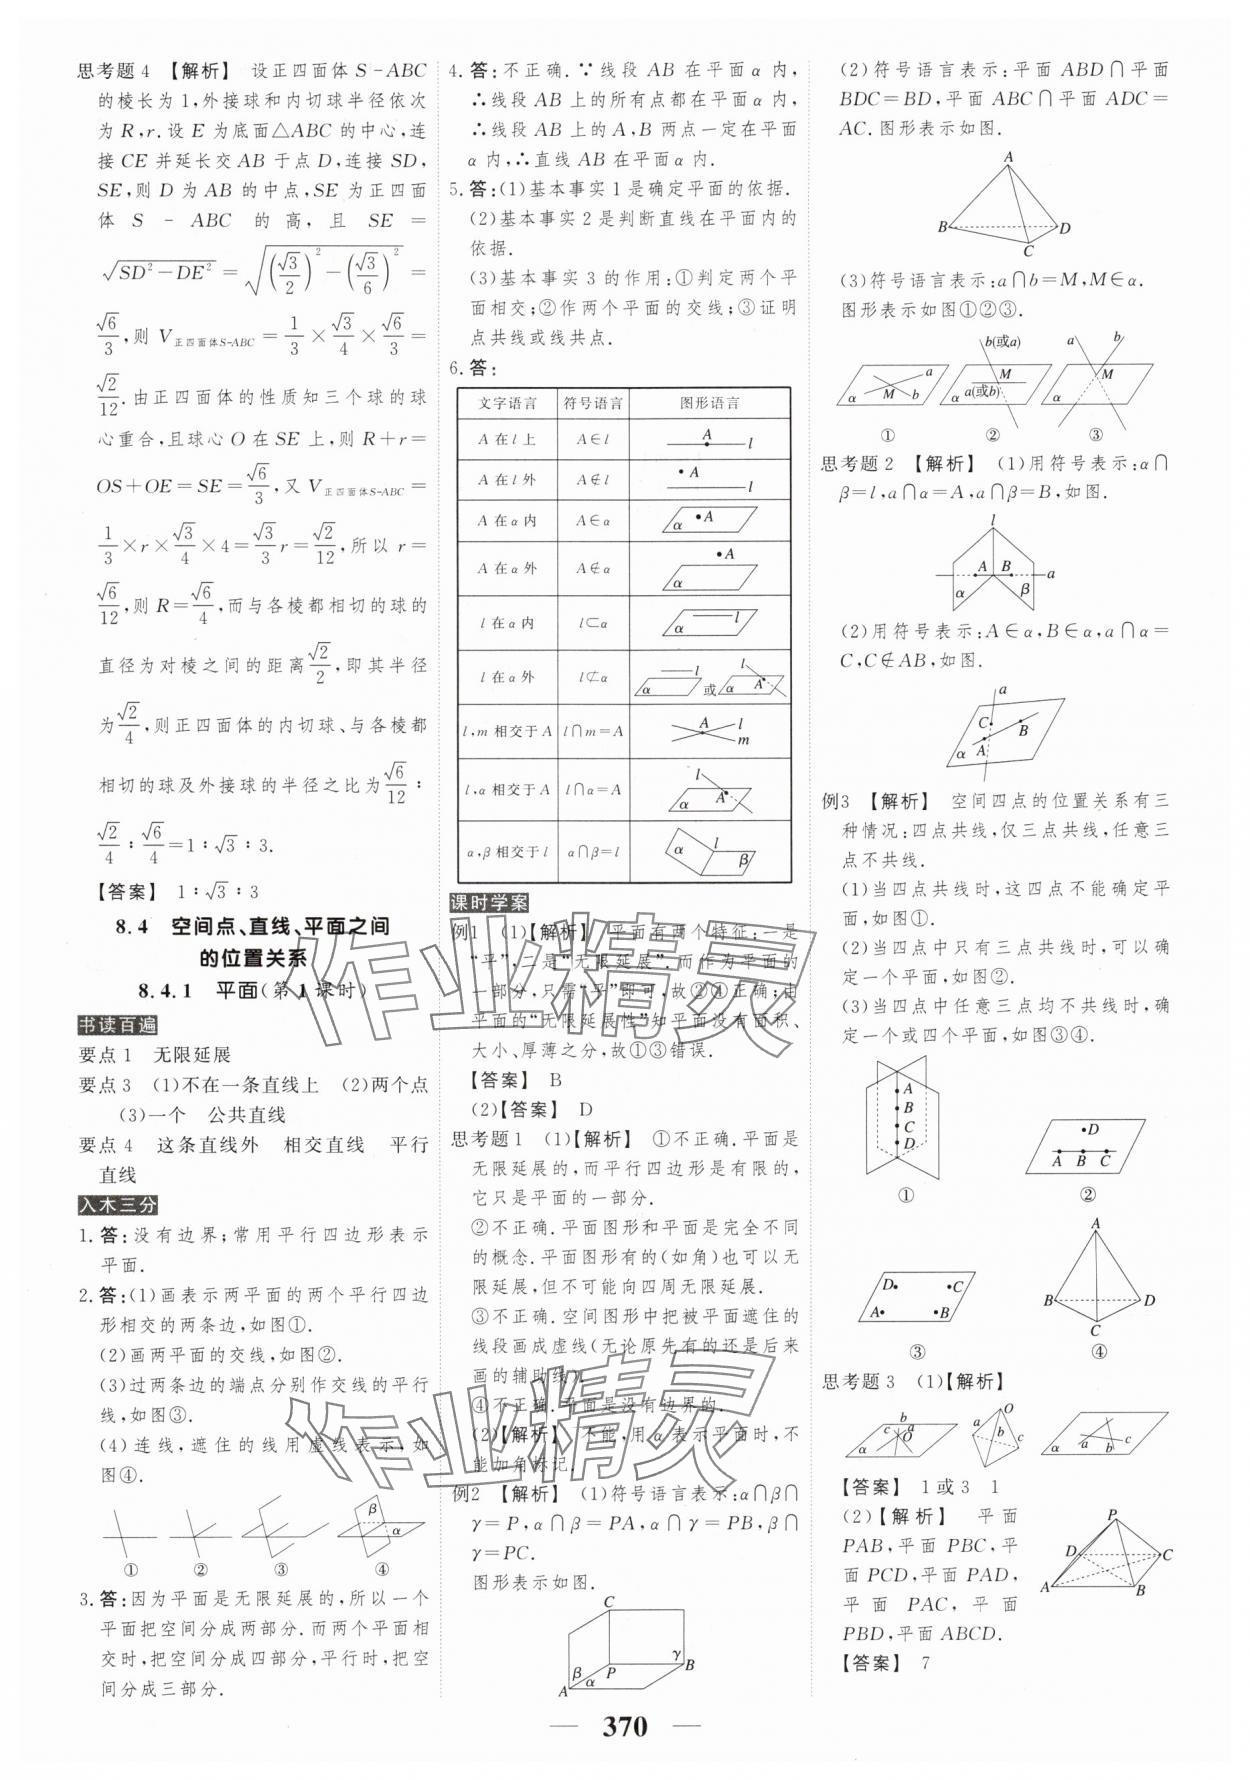 思考题4 【解析】 设正四面体S-ABC
的棱长为1,外接球和内切球半径依次
为R,r.设E为底面△ABC的中心,连
接CE并延长交AB于点D,连接SD,
SE,则D为AB的中点,SE为正四面
体S-ABC的高,且SE=
√(SD²-DE²)=√((√3/2)²-(√3/6)²)=
√6/3,则V正四面体S-ABC=1/3×√3/4×√6/3=
√2/12.由正四面体的性质知三个球的球
心重合,且球心O在SE上,则R+r=
OS+OE=SE=√6/3,又V正四面体S-ABC=
1/3×r×√3/4×4=√3/3r=√2/12,所以r=
√6/12,则R=√6/4,而与各棱都相切的球的
直径为对棱之间的距离√2/2,即其半径
为√2/4,则正四面体的内切球、与各棱都
相切的球及外接球的半径之比为√6/12∶
√2/4∶√6/4=1∶√3∶3.
【答案】 1∶√3∶3
8.4 空间点、直线、平面之间
的位置关系
8.4.1 平面(第1课时)
书读百遍
要点1 无限延展
要点3 (1)不在一条直线上 (2)两个点
(3)一个 公共直线
要点4 这条直线外 相交直线 平行
直线
入木三分
1.答:没有边界;常用平行四边形表示
平面.
2.答:(1)画表示两平面的两个平行四边
形相交的两条边,如图①.
(2)画两平面的交线,如图②.
(3)过两条边的端点分别作交线的平行
线,如图③.
(4)连线,遮住的线用虚线表示,如
图④.
β α
① ② ③ ④
3.答:因为平面是无限延展的,所以一个
平面把空间分成两部分.而两个平面相
交时,把空间分成四部分,平行时,把空
间分成三部分.
4.答:不正确.∵线段AB在平面α内,
∴线段AB上的所有点都在平面α内,
∴线段AB上的A,B两点一定在平面
α内,∴直线AB在平面α内.
5.答:(1)基本事实1是确定平面的依据.
(2)基本事实2是判断直线在平面内的
依据.
(3)基本事实3的作用:①判定两个平
面相交;②作两个平面的交线;③证明
点共线或线共点.
6.答:
文字语言 符号语言 图形语言
A在l上 A∈l A l
A在l外 A∉l A l
A在α内 A∈α α A
A在α外 A∉α α A
l在α内 l⊂α α l
l在α外 l⊄α α l 或 α A l
l,m相交于A l∩m=A A l m
l,α相交于A l∩α=A α A l
α,β相交于l α∩β=l α l β
课时学案
例1 (1)【解析】 平面有两个特征:一是
“平”,二是“无限延展”.而作为平面的
一部分,只需“平”即可,故②④正确;由
平面的“无限延展性”知平面没有面积、
大小、厚薄之分,故①③错误.
【答案】 B
(2)【答案】 D
思考题1 (1)【解析】 ①不正确.平面是
无限延展的,而平行四边形是有限的,
它只是平面的一部分.
②不正确.平面图形和平面是完全不同
的概念.平面图形有的(如角)也可以无
限延展,但不可能向四周无限延展.
③不正确.空间图形中把被平面遮住的
线段画成虚线(无论原先有的还是后来
画的辅助线).
④不正确.平面是没有边界的.
(2)【解析】 不能,用α表示平面时,不
能加角标记.
例2 【解析】 (1)符号语言表示:α∩β∩
γ=P,α∩β=PA,α∩γ=PB,β∩
γ=PC.
图形表示如图.
C
β P γ
A α B
(2)符号语言表示:平面ABD∩平面
BDC=BD,平面ABC∩平面ADC=
AC.图形表示如图.
A
B D
C
(3)符号语言表示:a∩b=M,M∈α.
图形表示如图①②③.
a b(或a) a b
α M b α a(或b) M α M
① ② ③
思考题2 【解析】 (1)用符号表示:α∩
β=l,a∩α=A,a∩β=B,如图.
l
A B a
α β
(2)用符号表示:A∈α,B∈α,a∩α=
C,C∉AB,如图.
a
C B
α A
例3 【解析】 空间四点的位置关系有三
种情况:四点共线,仅三点共线,任意三
点不共线.
(1)当四点共线时,这四点不能确定平
面,如图①.
(2)当四点中只有三点共线时,可以确
定一个平面,如图②.
(3)当四点中任意三点均不共线时,确
定一个或四个平面,如图③④.
A
B
C
D
D
A B C
① ②
A
D C
A B
B D
C
③ ④
思考题3 (1)【解析】
b O
α c a a b c α a b c
【答案】 1或3 1
(2)【解析】 平面
PAB,平面PBC,平
面PCD,平面PAD,
平面PAC,平面
PBD,平面ABCD.
P
D C
A B
【答案】 7
370
作业精灵
作业精灵